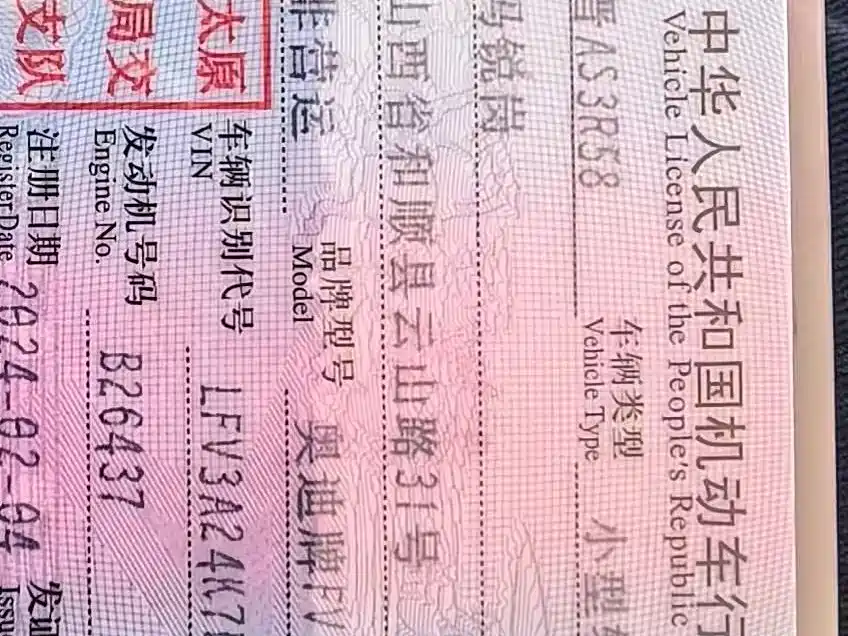 中华人民共和国机动车行
Vehicle License of the People's Republic
晋AS3R58
车辆类型
Vehicle Type
小型
冯锐岗
山西省和顺县云山路31号
非营运
品牌型号
Model
奥迪牌FV
太原
局交
支队
车辆识别代号
VIN
LFV3A24K7
发动机号码
Engine No.
B26437
注册日期
Register Date
2024-02-04
发证
Issu